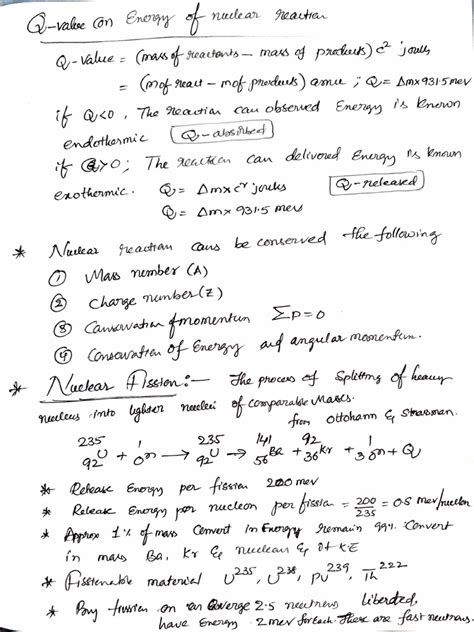 Q-value on Energy of nuclear reaction
Q-value = (mass of reactants - mass of products) c² joules
= (m of react - m of products) amu ; Q = Δm x 931.5 mev
if Q<0, The reaction can observed Energy is known
endothermic Q-absorbed
if Q>0; The reaction can delivered Energy is known
exothermic. Q = Δm x c² joules Q-released
Q = Δm x 931.5 mev
* Nuclear reaction can be conserved the following
① Mass number (A)
② charge number (Z)
③ Consarvation of momentum ΣP=0
④ Consarvation of Energy and angular momentum.
* Nuclear fission:- The process of splitting of heavy
nucleus into lighter nuclei of comparable Masses.
from Ottohann & strasman.
²³⁵₉₂U + ¹₀n → ²³⁵₉₂U → ¹⁴¹₅₆Ba + ⁹²₃₆Kr + 3¹₀n + Q
* Release Energy per fission 200 mev
* Release Energy per nucleon per fission = 200/235 = 0.8 mev/nucleon
* Approx 1% of mass Convert in Energy remain 99% Convert
in mass Ba, Kr & nuclear & of KE
* Fissionable material U²³⁵, U²³⁸, PU²³⁹, Th²³²
* By fission on an average 2.5 neutrons liberated,
have Energy 2 mev for Each. These are fast neutrons